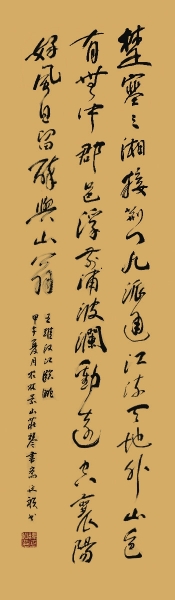 楚塞三湘接荆门九派通江流天地外山色
有无中郡邑浮前浦波澜动远空襄阳
好风日留醉与山翁
王维汉江临眺
甲午夏月